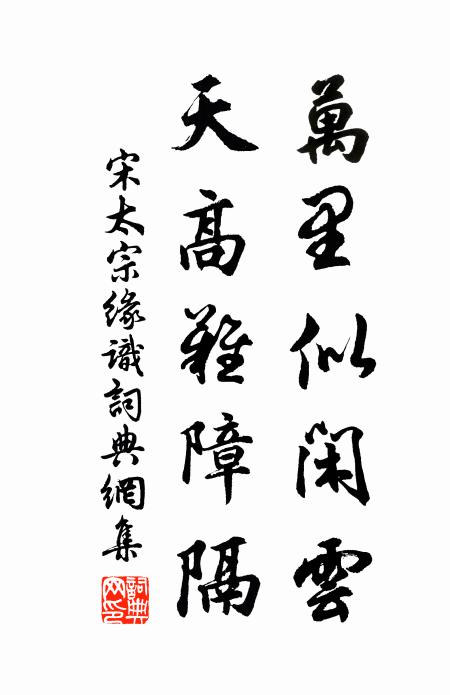 萬里似閑雲
天高難障隔
宋太宗緣識詞典網集
詞典網印